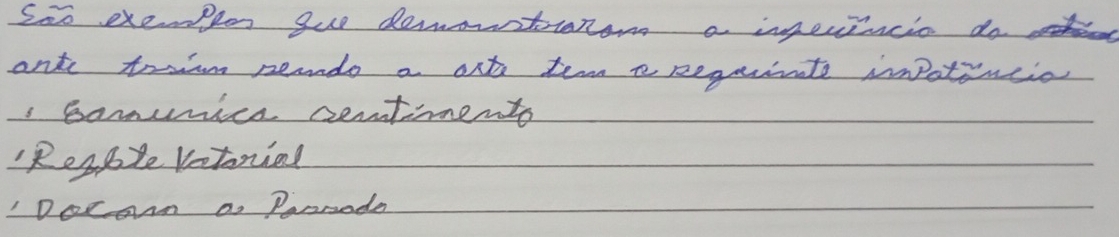 São exemplos que demonstraram a inpeuância da
ante assim sendo a arte tem a seguinte inpotância
. Comunica sentimento
. Resgate Vatorial
. Docam o Passado